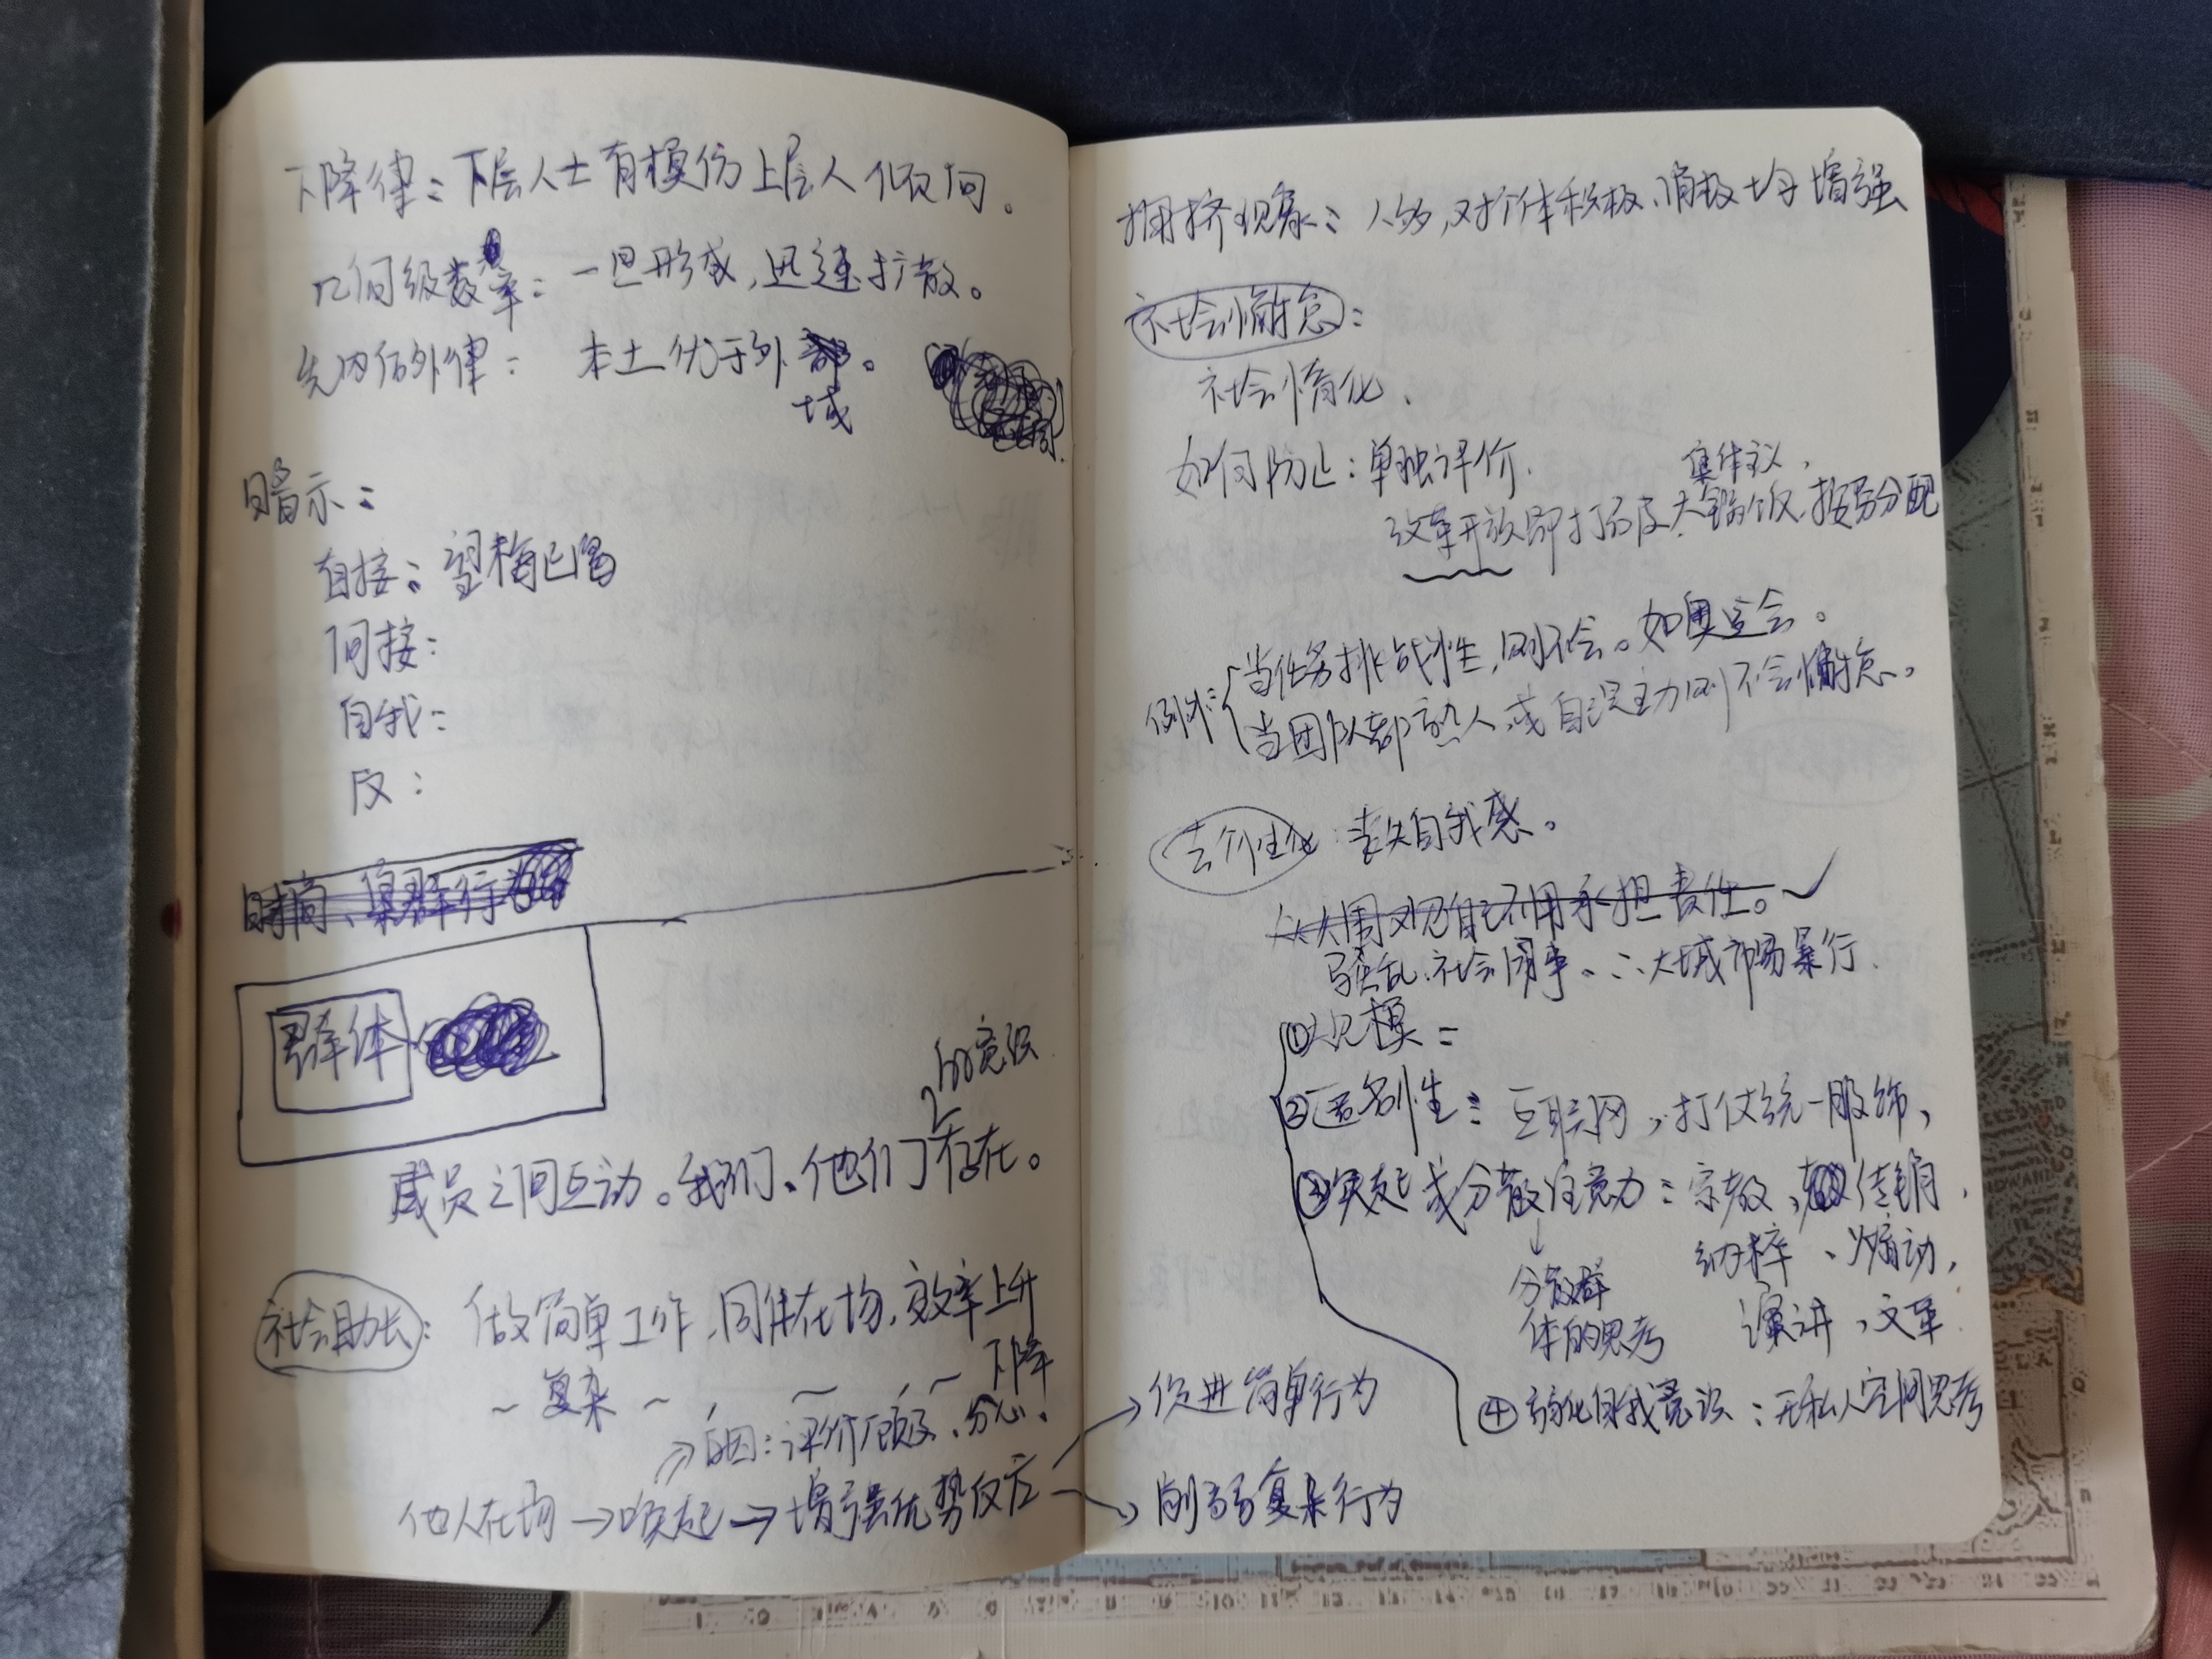 下降律：下层人士有模仿上层人倾向。
几何级数率：一旦形成，迅速扩散。
先内后外律：本土优于外域。
暗示：
直接：望梅止渴
间接：
自我：
反：
时尚、集群行为
群体
的意识
成员之间互动。我们、他们存在。
社会助长：做简单工作，同伴在场，效率上升
～复杂～，～，～下降
原因：评价顾忌、分心。
他人在场→唤起→增强优势反应
→促进简单行为
→削弱复杂行为
拥挤现象：人多，对个体积极、消极均增强
社会懈怠：
社会惰化、
如何防止：单独评价.
集体主义、
改革开放即打破大锅饭,按劳分配
例外：当任务挑战性，则不会。如奥运会。
当团队都熟人或自己主力则不会懈怠。
去个性化：丧失自我感。
人人围观自己不用承担责任。✓
骚乱、社会闹事、大城市易暴行.
①规模：
②匿名性：互联网，打仗统一服饰，
③唤起或分散注意力：宗教，传销，
↓ 纳粹、煽动，
分散群 演讲，文革
体的思考
④弱化自我意识：无私人空间思考